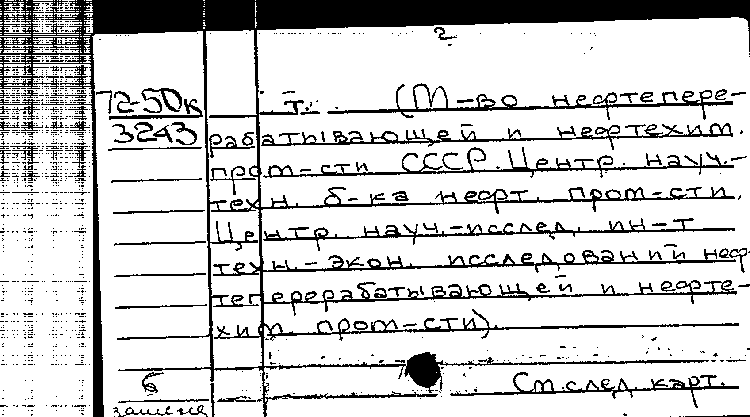 2
72-50к т. (М-во нефтепере-
3243 рабатывающей и нефтехим.
пром-сти СССР. Центр. науч.-
техн. б-ка нефт. пром-сти.
Центр. науч.-исслед. ин-т
техн.-экон. исследований неф-
теперерабатывающей и нефте-
хим. пром-сти).
б См. след. карт.